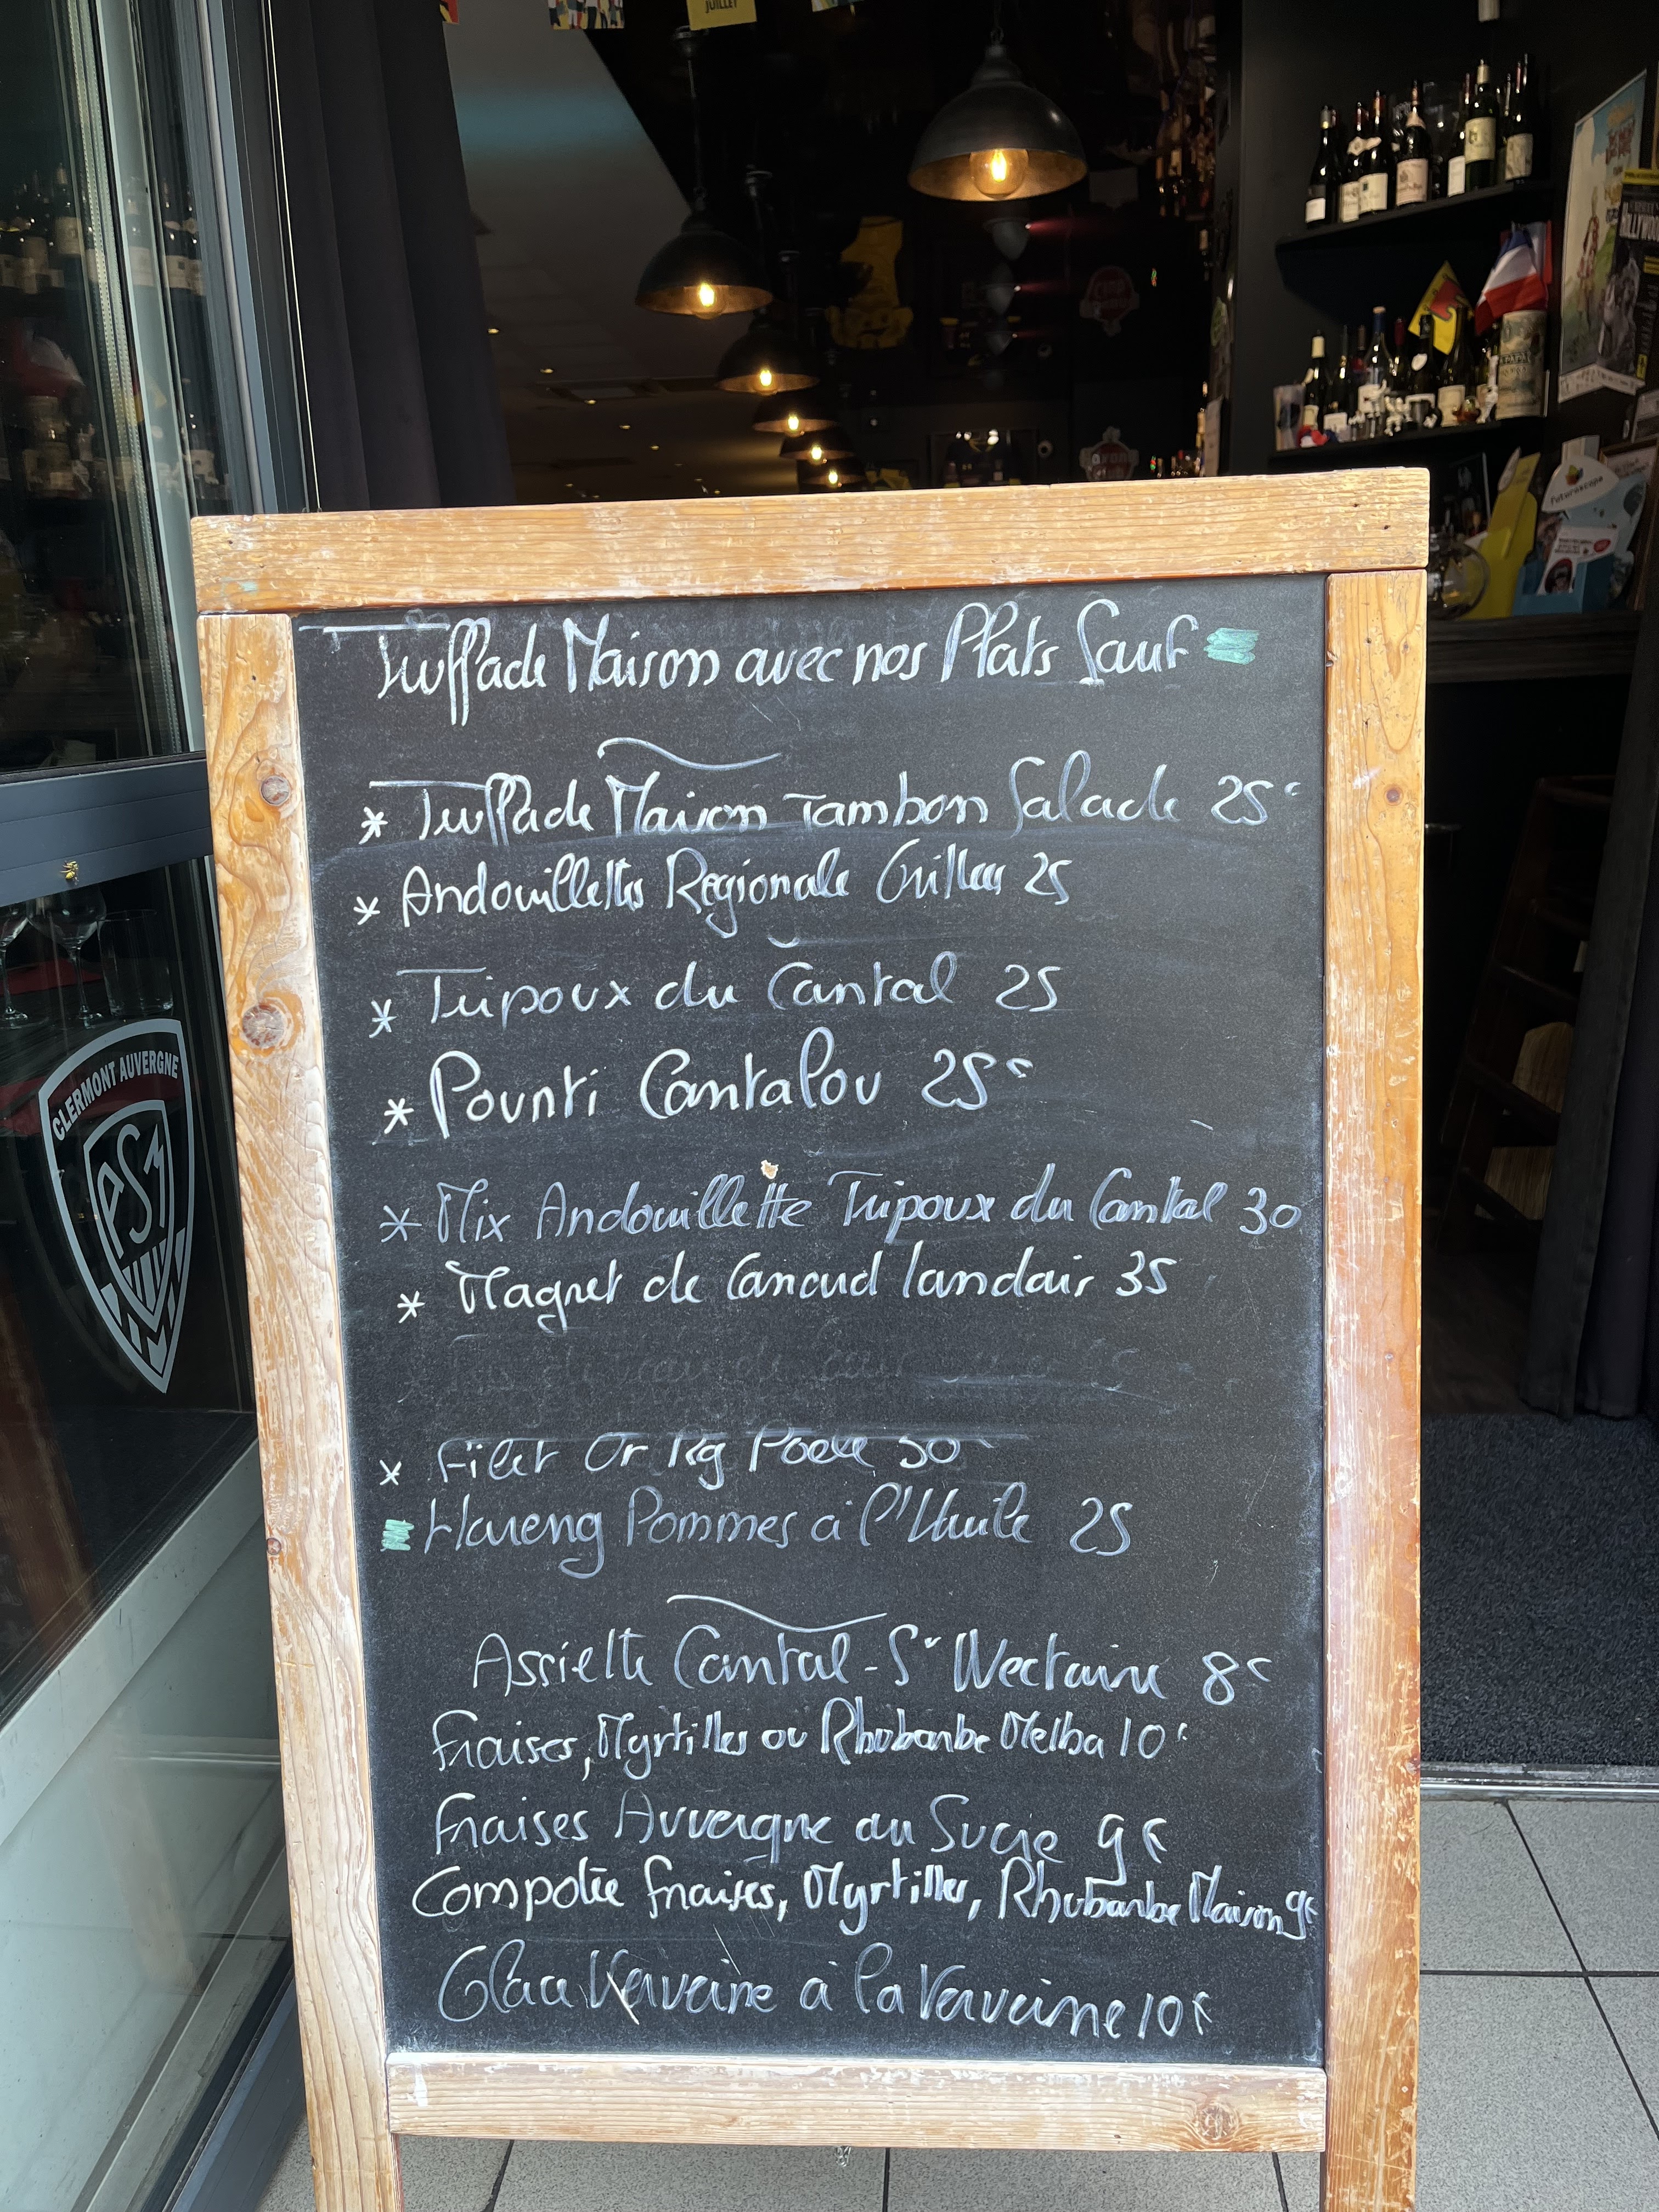 JUILLET
Futuroscope
CLERMONT AUVERGNE
ASM
Truffade Maison avec nos Plats Sauf
* Truffade Maison Jambon Salade 25€
* Andouillettes Régionale Grillées 25
* Tripoux du Cantal 25
* Pounti Cantalou 25€
* Mix Andouillette Tripoux du Cantal 30
* Magret de Canard landais 35
* Filet Or Rg Poêle 30€
Hareng Pommes à l'Huile 25
Assiette Cantal - St Nectaire 8€
Fraises, Myrtilles ou Rhubarbe Melba 10€
Fraises Auvergne au Sucre 9€
Compotée fraises, Myrtilles, Rhubarbe Maison 9€
Glace Verveine à la Verveine 10€